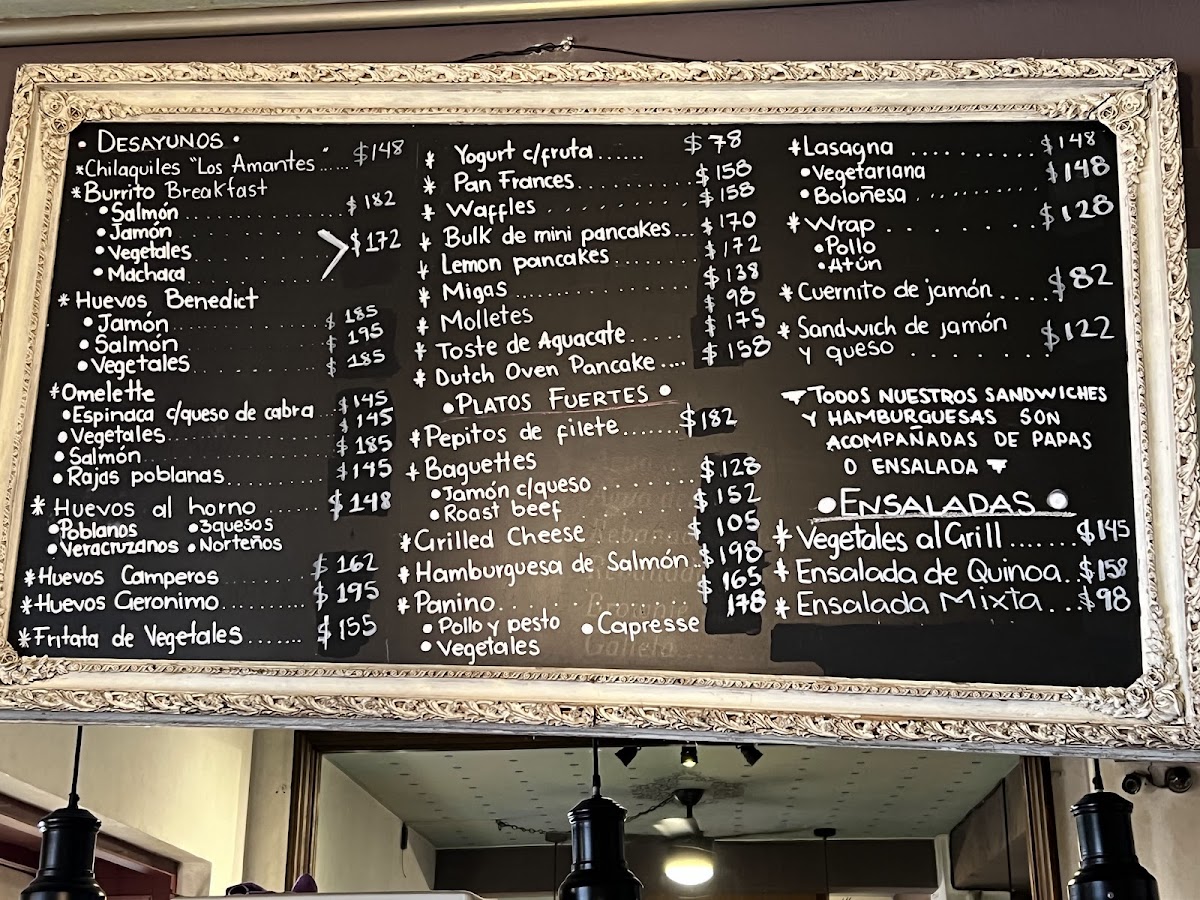 • DESAYUNOS •
*Chilaquiles "Los Amantes"...... $148
*Burrito Breakfast
• Salmón .................... $182
• Jamón
• Vegetales .................... $172
• Machaca
* Huevos Benedict
• Jamón .................... $185
• Salmón .................... $195
• Vegetales .................... $185
*Omelette
• Espinaca c/queso de cabra ... $145
• Vegetales .................... $145
• Salmón .................... $185
• Rajas poblanas .................... $145
* Huevos al horno .......... $148
• Poblanos • 3quesos
• Veracruzanos • Norteños
*Huevos Camperos .......... $162
*Huevos Geronimo .......... $195
*Fritata de Vegetales ....... $155
* Yogurt c/fruta ...... $78
* Pan Frances .......... $158
* Waffles .......... $158
* Bulk de mini pancakes ... $170
* Lemon pancakes .......... $172
* Migas .................... $138
* Molletes $98
* Toste de Aguacate ...... $175
* Dutch Oven Pancake .... $158
• PLATOS FUERTES •
*Pepitos de filete ....... $182
* Baguettes
• Jamón c/queso .......... $128
• Roast beef .......... $152
*Grilled Cheese $105
*Hamburguesa de Salmón.. $198
*Panino .......... $165
178
• Pollo y pesto • Capresse
• Vegetales
*Lasagna .......... $148
• Vegetariana $148
• Boloñesa ..........
* Wrap .......... $128
• Pollo
• Atún
* Cuernito de jamón .... $82
* Sandwich de jamón
y queso .......... $122
TODOS NUESTROS SANDWICHES
Y HAMBURGUESAS SON
ACOMPAÑADAS DE PAPAS
O ENSALADA
• ENSALADAS •
* Vegetales al Grill ....... $145
* Ensalada de Quinoa.. $158
* Ensalada Mixta... $98